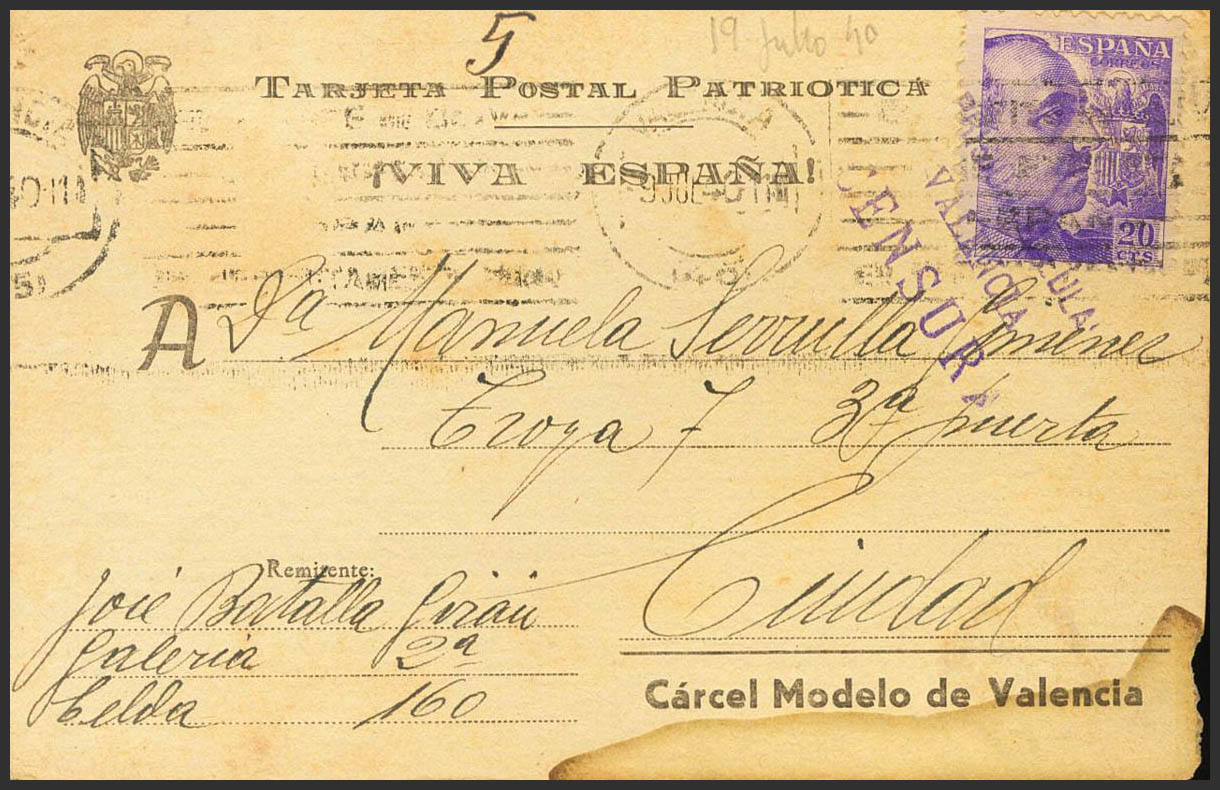 5
19 Julio 40
TARJETA POSTAL PATRIOTICA
¡VIVA ESPAÑA!
ESPAÑA
CORREOS
20
CTS
CENSURA
VALENCIA
A Dª Manuela Serrulla Gimenez
Troya 7 3ª puerta
Ciudad
Remitente:
José Batalla Girán
Galeria 2ª
Celda 160
Cárcel Modelo de Valencia